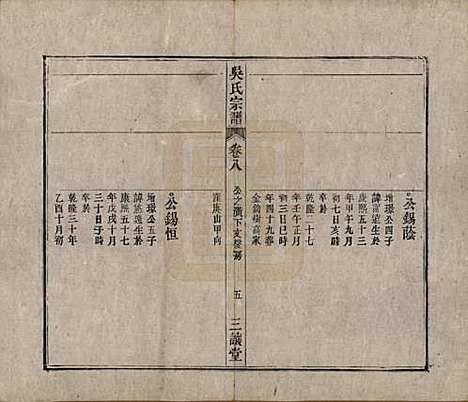 公錫蔭
增璟公四子
諱
生於
康熙五十三
年甲午九月
初七日亥時
卒於
乾隆二十七
年壬午正月
初三日巳時
年四十九葬
金鈎樹高家
庄後山甲向
吳氏宗譜
卷八
公之濟下支發房
五
三讓堂
公錫恒
增璟公五子
諱 生於
康熙五十七
年戊戌十月
三十日子時
卒於
乾隆三十年
乙酉十月初